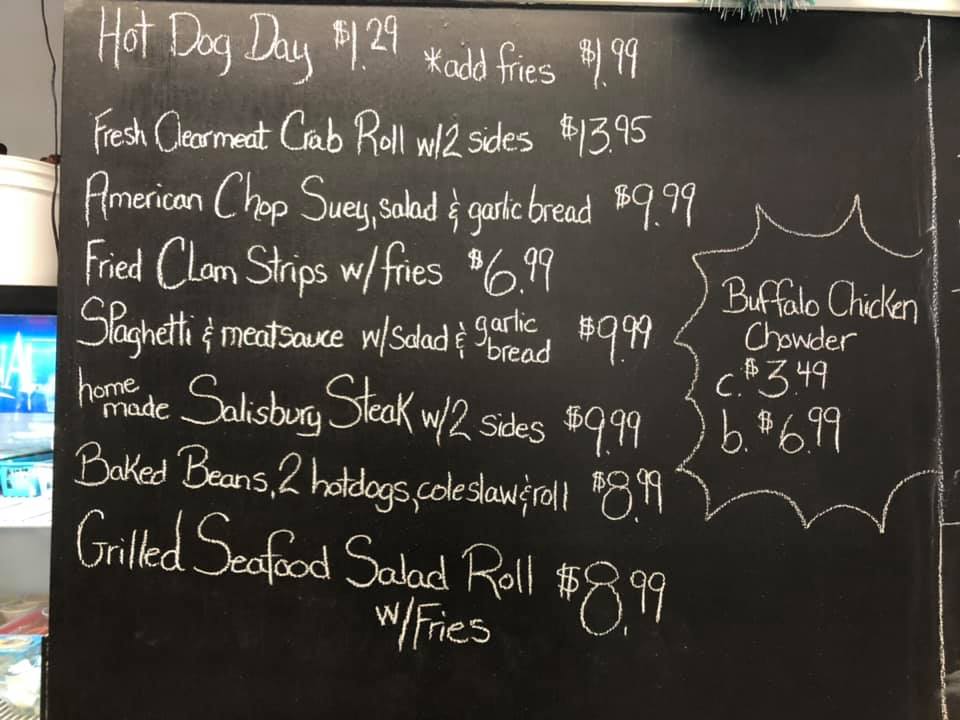 Hot Dog Day $1.29 *add fries $1.99
Fresh Clearmeat Crab Roll w/2 sides $13.95
American Chop Suey, salad & garlic bread $9.99
Fried Clam Strips w/fries $6.99
Spaghetti & meatsauce w/Salad & garlic bread $9.99
home made Salisbury Steak w/2 sides $9.99
Baked Beans, 2 hotdogs, coleslaw & roll $8.99
Grilled Seafood Salad Roll $8.99
w/Fries
Buffalo Chicken
Chowder
c. $3.49
b. $6.99